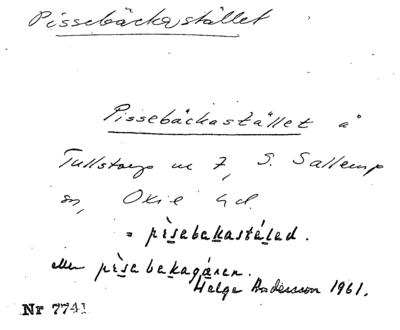 Pissebäckastället
Pissebäckastället å
Tullstorp nr 7, S. Sallerup
sn, Oxie hd.
= pìsabakastálad.
eller pìsabakagáren.
Helge Andersson 1961.
Nr 7741